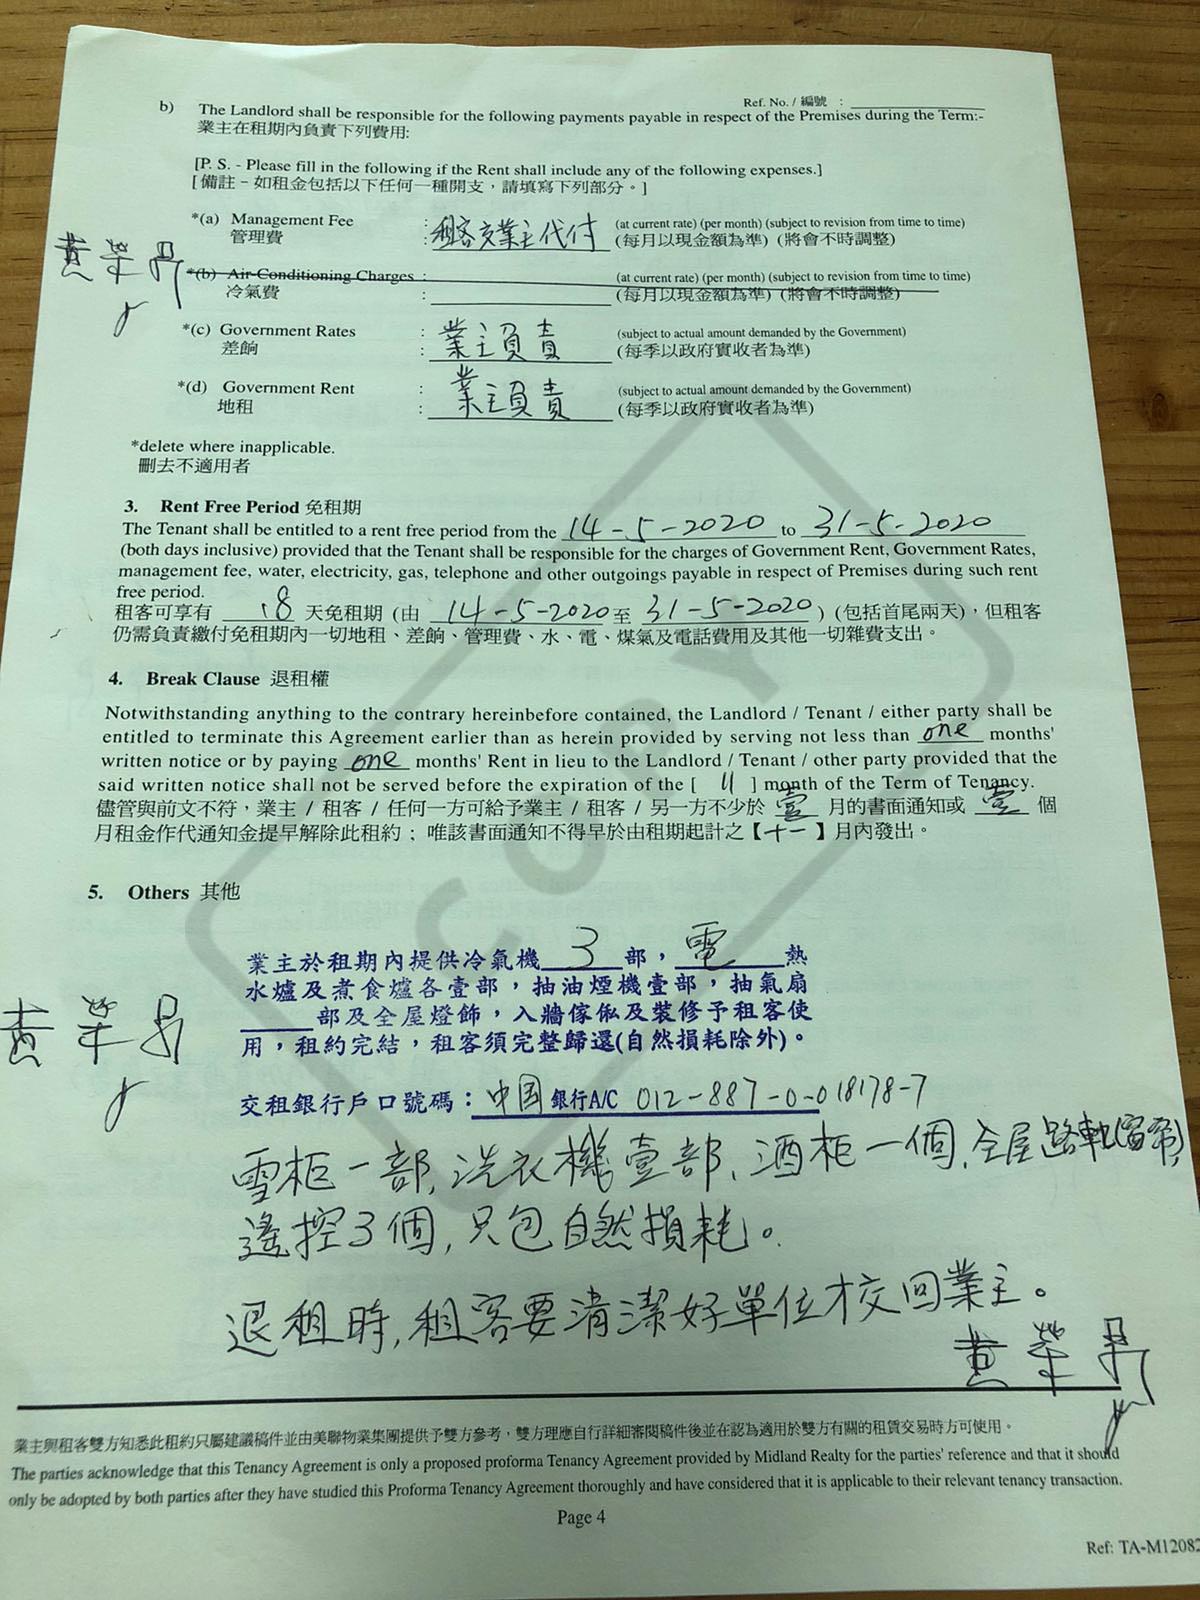 Ref. No. / 編號 :
b) The Landlord shall be responsible for the following payments payable in respect of the Premises during the Term:-
業主在租期內負責下列費用:
[P. S. - Please fill in the following if the Rent shall include any of the following expenses.]
[ 備註 - 如租金包括以下任何一種開支，請填寫下列部分。]
*(a) Management Fee : 租客交業主代付 (at current rate) (per month) (subject to revision from time to time)
管理費 : (每月以現金額為準) (將會不時調整)
黃榮
*(b) Air-Conditioning Charges : (at current rate) (per month) (subject to revision from time to time)
冷氣費 : (每月以現金額為準) (將會不時調整)
*(c) Government Rates : 業主負責 (subject to actual amount demanded by the Government)
差餉 : (每季以政府實收者為準)
*(d) Government Rent : 業主負責 (subject to actual amount demanded by the Government)
地租 : (每季以政府實收者為準)
*delete where inapplicable.
刪去不適用者
3. Rent Free Period 免租期
The Tenant shall be entitled to a rent free period from the 14-5-2020 to 31-5-2020
(both days inclusive) provided that the Tenant shall be responsible for the charges of Government Rent, Government Rates,
management fee, water, electricity, gas, telephone and other outgoings payable in respect of Premises during such rent
free period.
租客可享有 18 天免租期 (由 14-5-2020 至 31-5-2020 ) (包括首尾兩天)，但租客
仍需負責繳付免租期內一切地租、差餉、管理費、水、電、煤氣及電話費用及其他一切雜費支出。
4. Break Clause 退租權
Notwithstanding anything to the contrary hereinbefore contained, the Landlord / Tenant / either party shall be
entitled to terminate this Agreement earlier than as herein provided by serving not less than one months'
written notice or by paying one months' Rent in lieu to the Landlord / Tenant / other party provided that the
said written notice shall not be served before the expiration of the [ 11 ] month of the Term of Tenancy.
儘管與前文不符，業主 / 租客 / 任何一方可給予業主 / 租客 / 另一方不少於 壹 月的書面通知或 壹 個
月租金作代通知金提早解除此租約；唯該書面通知不得早於由租期起計之【十一】月內發出。
COPY
5. Others 其他
業主於租期內提供冷氣機 3 部，電 熱
水爐及煮食爐各壹部，抽油煙機壹部，抽氣扇
部及全屋燈飾，入牆傢俬及裝修予租客使
用，租約完結，租客須完整歸還(自然損耗除外)。
黃榮
交租銀行戶口號碼：中国 銀行A/C 012-887-0-018178-7
雪柜一部,洗衣機壹部,酒柜一個,全屋路軌(窗帘)
遙控3個,只包自然損耗。
退租時,租客要清潔好單位才交回業主。
黃榮
業主與租客雙方知悉此租約只屬建議稿件並由美聯物業集團提供予雙方參考，雙方理應自行詳細審閱稿件後並在認為適用於雙方有關的租賃交易時方可使用。
The parties acknowledge that this Tenancy Agreement is only a proposed proforma Tenancy Agreement provided by Midland Realty for the parties' reference and that it should
only be adopted by both parties after they have studied this Proforma Tenancy Agreement thoroughly and have considered that it is applicable to their relevant tenancy transaction.
Page 4
Ref: TA-M12082